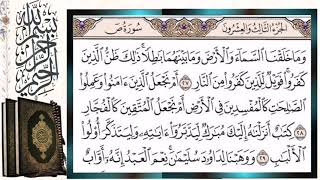 الجزء الثالث والعشرون
سورة ص
وَمَا خَلَقْنَا ٱلسَّمَآءَ وَٱلْأَرْضَ وَمَا بَيْنَهُمَا بَٰطِلًا ۚ ذَٰلِكَ ظَنُّ ٱلَّذِينَ
كَفَرُوا۟ ۚ فَوَيْلٌ لِّلَّذِينَ كَفَرُوا۟ مِنَ ٱلنَّارِ ٢٧ أَمْ نَجْعَلُ ٱلَّذِينَ ءَامَنُوا۟ وَعَمِلُوا۟
ٱلصَّٰلِحَٰتِ كَٱلْمُفْسِدِينَ فِى ٱلْأَرْضِ أَمْ نَجْعَلُ ٱلْمُتَّقِينَ كَٱلْفُجَّارِ
٢٨ كِتَٰبٌ أَنزَلْنَٰهُ إِلَيْكَ مُبَٰرَكٌ لِّيَدَّبَّرُوٓا۟ ءَايَٰتِهِۦ وَلِيَتَذَكَّرَ أُو۟لُوا۟
ٱلْأَلْبَٰبِ ٢٩ وَوَهَبْنَا لِدَاوُۥدَ سُلَيْمَٰنَ ۚ نِعْمَ ٱلْعَبْدُ ۖ إِنَّهُۥٓ أَوَّابٌ
بسم الله الرحمن الرحيم